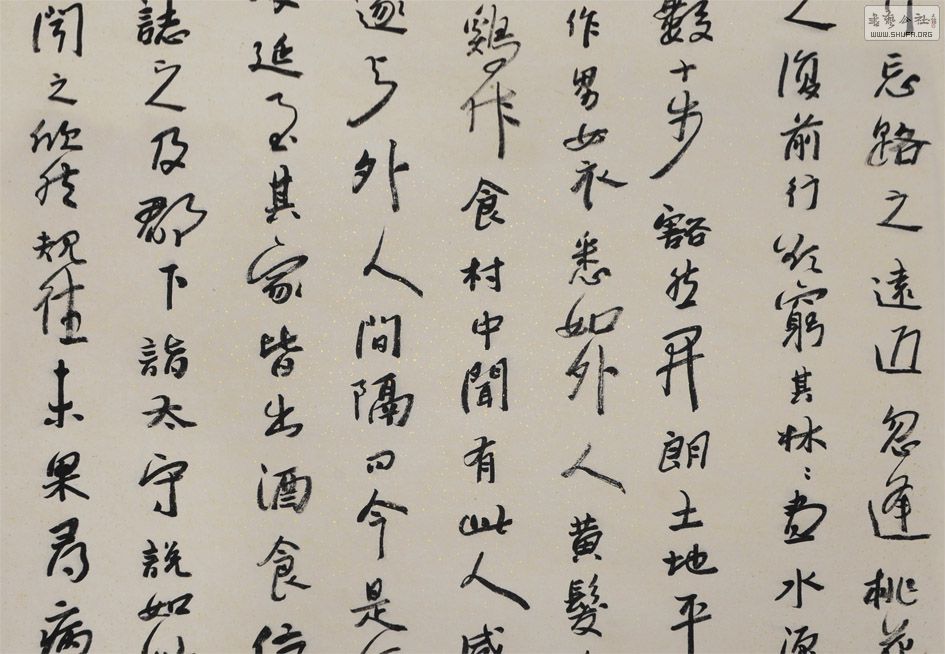 書藝公社
WWW.SHUFA.ORG
忘路之遠近忽逢桃花
之復前行欲窮其林〻盡水源
數十步豁然開朗土地平
作男女衣悉如外人黃髮
雞作食村中聞有此人咸
遂与外人間隔問今是
延至其家皆出酒食停
誌之及郡下詣太守說如此
聞之欣然規往未果尋病